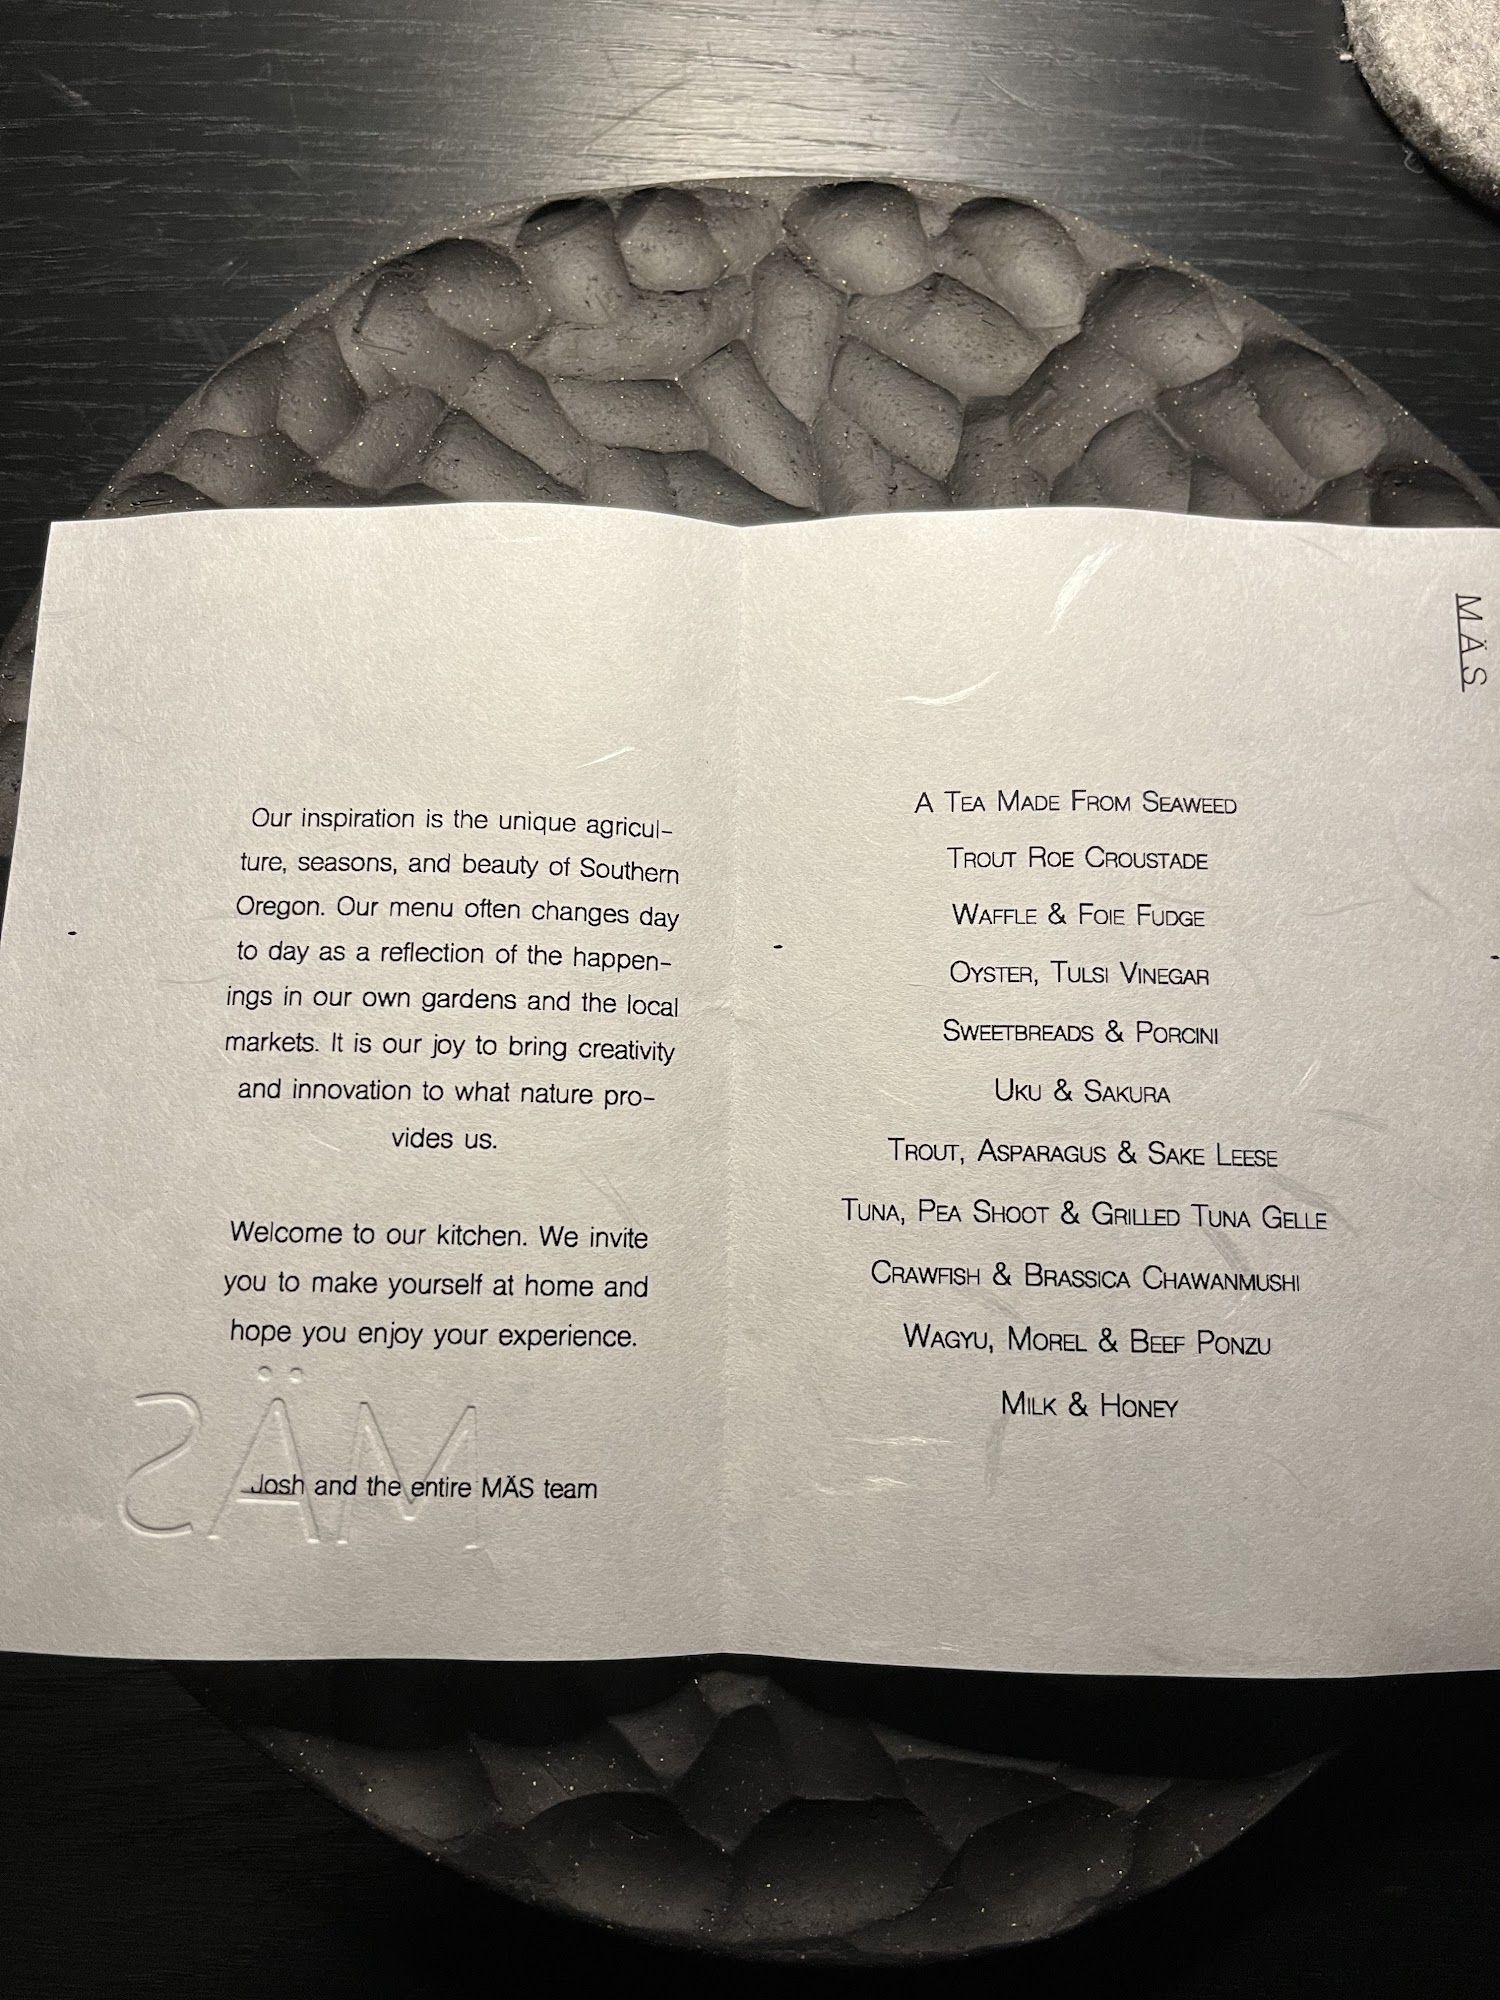 Our inspiration is the unique agricul-
ture, seasons, and beauty of Southern
Oregon. Our menu often changes day
to day as a reflection of the happen-
ings in our own gardens and the local
markets. It is our joy to bring creativity
and innovation to what nature pro-
vides us.
Welcome to our kitchen. We invite
you to make yourself at home and
hope you enjoy your experience.
MÄS
Josh and the entire MÄS team
MÄS
A Tea Made From Seaweed
Trout Roe Croustade
Waffle & Foie Fudge
Oyster, Tulsi Vinegar
Sweetbreads & Porcini
Uku & Sakura
Trout, Asparagus & Sake Leese
Tuna, Pea Shoot & Grilled Tuna Gelle
Crawfish & Brassica Chawanmushi
Wagyu, Morel & Beef Ponzu
Milk & Honey